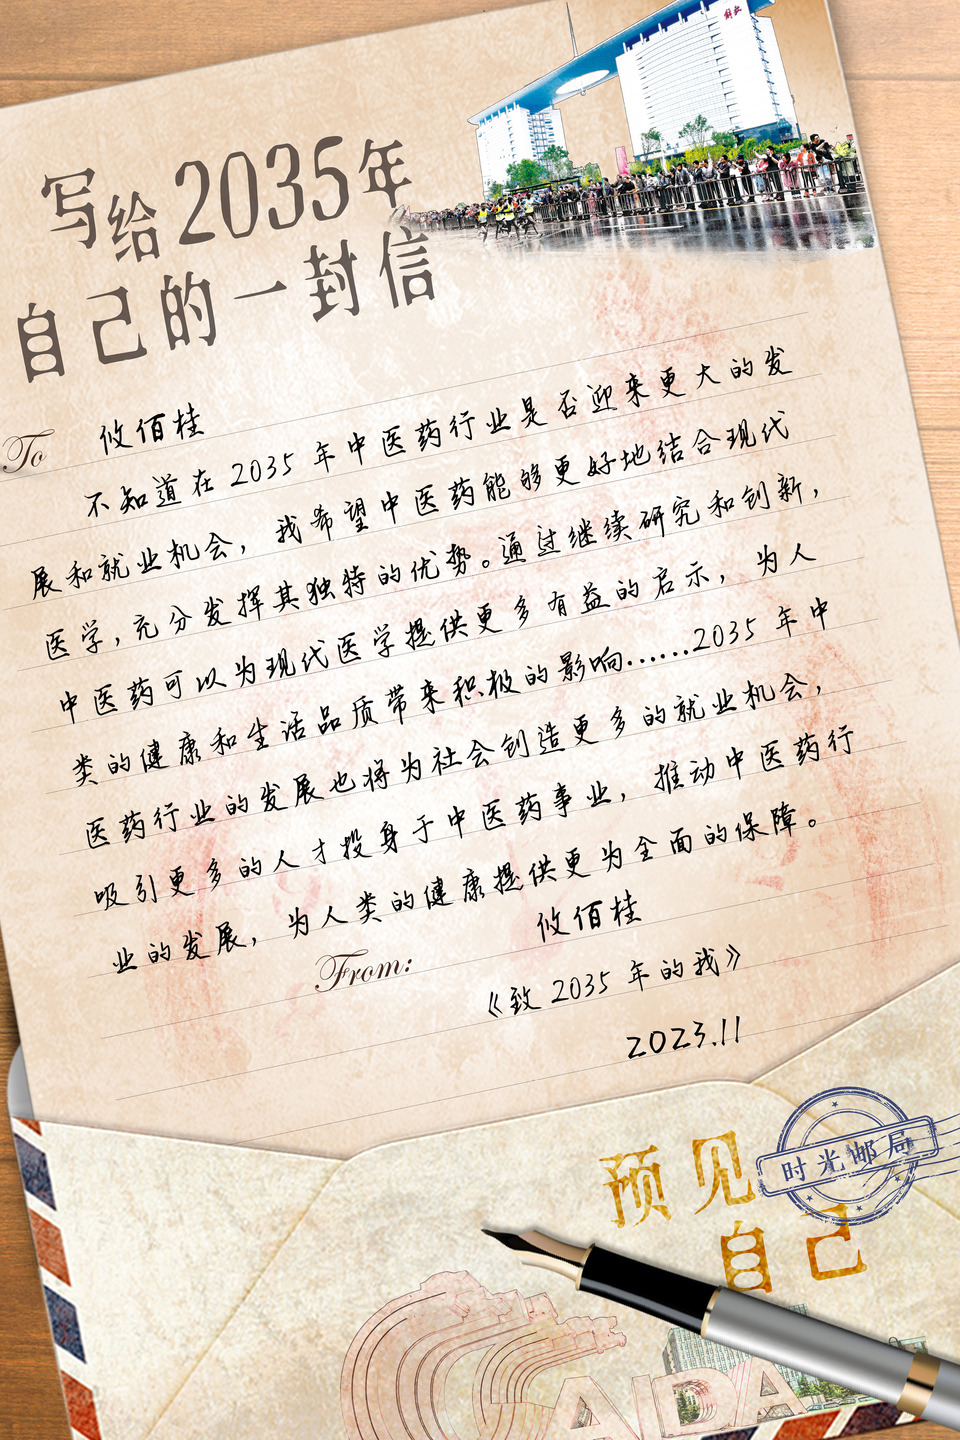 解放
写给2035年
自己的一封信
To 攸佰桂
不知道在2035年中医药行业是否迎来更大的发
展和就业机会，我希望中医药能够更好地结合现代
医学，充分发挥其独特的优势。通过继续研究和创新，
中医药可以为现代医学提供更多有益的启示，为人
类的健康和生活品质带来积极的影响……2035年中
医药行业的发展也将为社会创造更多的就业机会，
吸引更多的人才投身于中医药事业，推动中医药行
业的发展，为人类的健康提供更为全面的保障。
From: 攸佰桂
《致2035年的我》
2023.11
预见
自己
时光邮局